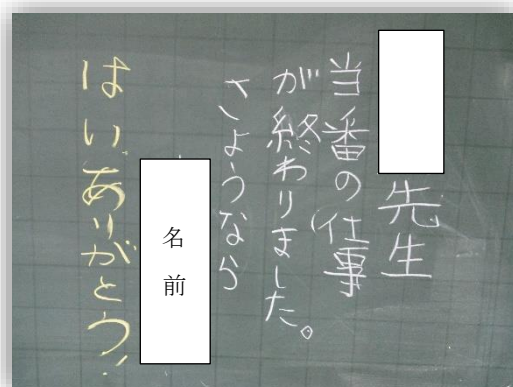 先生
当番の仕事
が終わりました。
さようなら
名前
はい、ありがとう!